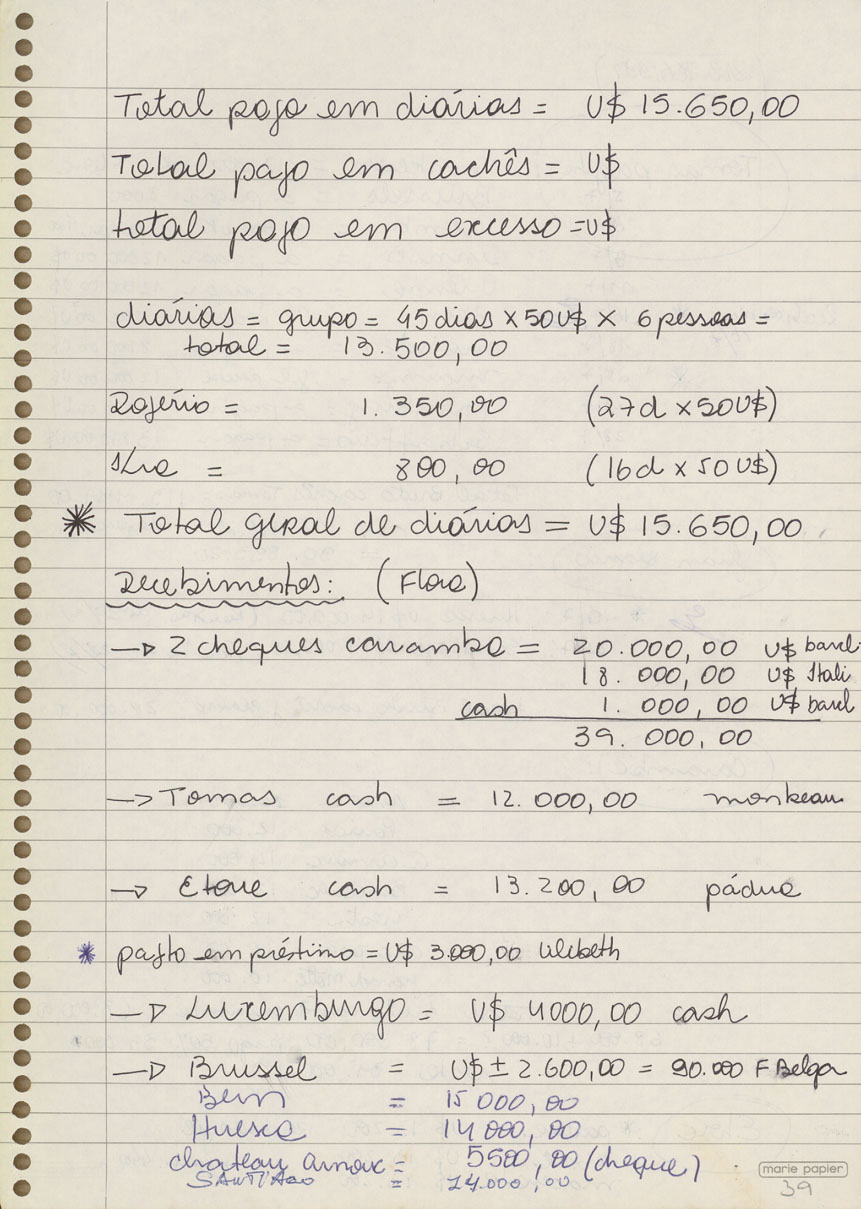 Total pago em diárias = U$ 15.650,00
Total pago em cachês = U$
total pago em excesso = U$
diárias = grupo = 45 dias x 50 U$ x 6 pessoas =
total = 13.500,00
Rogério = 1.350,00 (27d x 50 U$)
= 800,00 (16d x 50 U$)
* Total geral de diárias = U$ 15.650,00
Recebimentos: (Flora)
→ 2 cheques caramba = 20.000,00 U$ barcl
18.000,00 U$ Itali
cash 1.000,00 U$ barcl
39.000,00
→ Tomas cash = 12.000,00
→ cash = 13.200,00 pádua
* pagto empréstimo = U$ 3.000,00
→ Luxemburgo = U$ 4000,00 cash
→ Brussel = U$ ± 2.600,00 = 90.000 F Belga
Bern = 15 000,00
Huesca = 14 000,00
chateau = 5500,00 (cheque)
SANTIAGO = 14.000,00
marie papier
39